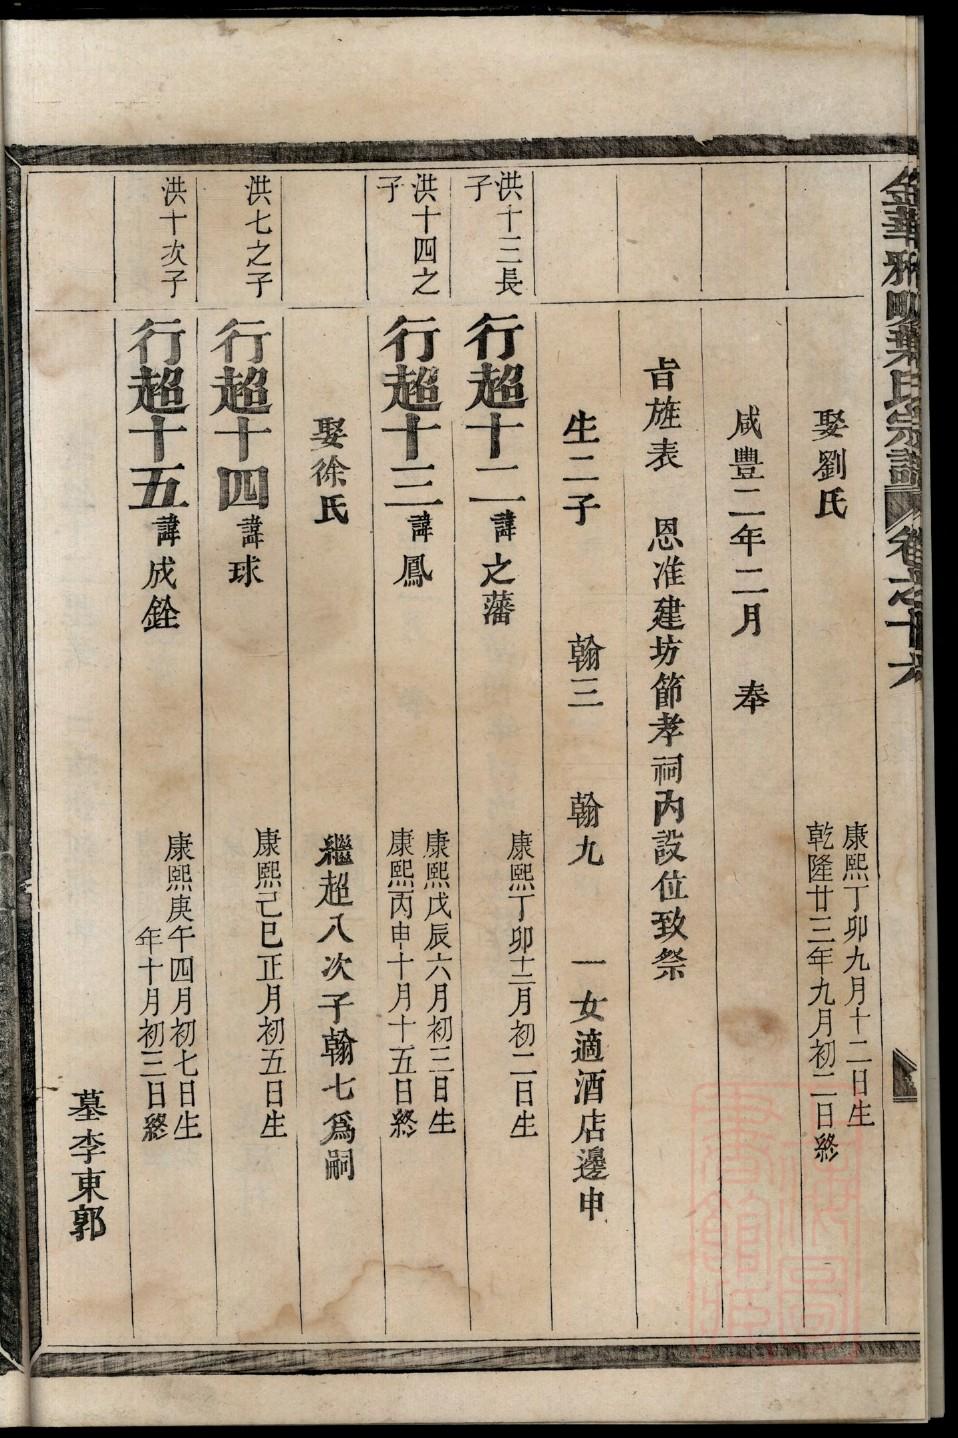 金華雅畈葉氏宗譜 卷之十六
娶劉氏 康熙丁卯九月十二日生
乾隆廿三年九月初二日終
咸豐二年二月 奉
旨旌表 恩准建坊節孝祠內設位致祭
生二子 翰三 翰九 一女適酒店邊申
洪十三長子
行超十二 諱之藩 康熙丁卯十二月初二日生
洪十四之子
行超十三 諱鳳 康熙戊辰六月初三日生
康熙丙申十月十五日終
娶徐氏 繼超八次子翰七爲嗣
洪七之子
行超十四 諱球 康熙己巳正月初五日生
洪十次子
行超十五 諱成銓 康熙庚午四月初七日生
年十月初三日終
墓李東郭